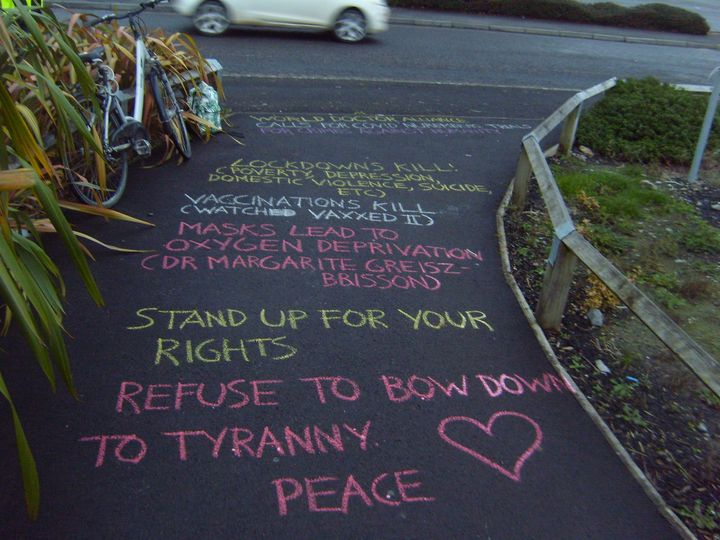 WORLD DOCTOR ALLIANCE
CALLS FOR COVID NUREMBERG TRIAL
FOR
LOCKDOWN'S KILL!
(POVERTY, DEPRESSION,
DOMESTIC VIOLENCE, SUICIDE,
ETC)
VACCINATIONS KILL
(WATCHED VAXXED II)
MASKS LEAD TO
OXYGEN DEPRIVATION
(DR MARGARITE GREISZ-
BBISSON)
STAND UP FOR YOUR
RIGHTS
REFUSE TO BOW DOWN
TO TYRANNY.
PEACE